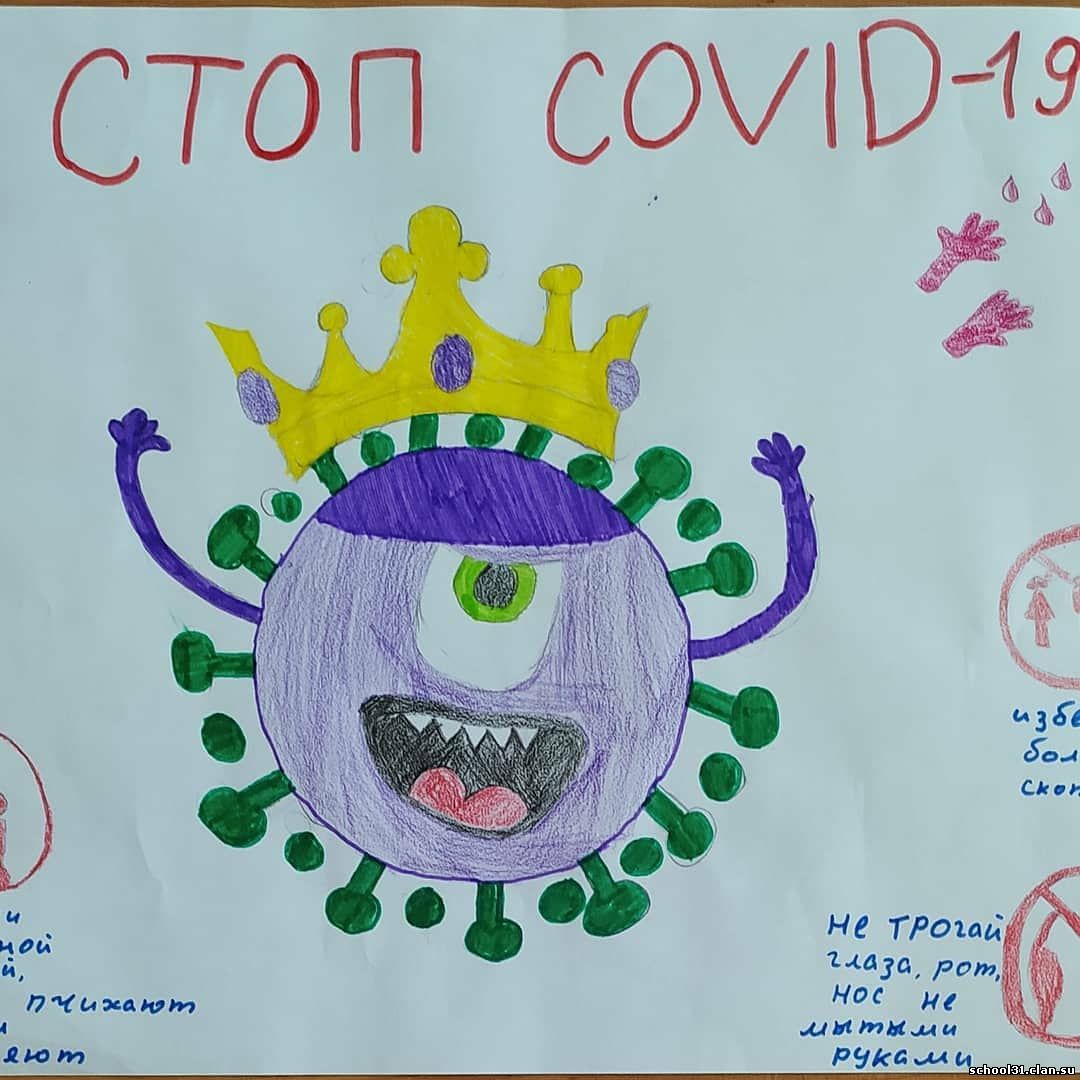 СТОП COVID-19
избе
бол
скоп
и
ной
й,
пчихают
и
яют
не трогай
глаза, рот,
нос не
мытыми
руками
school31.clan.su